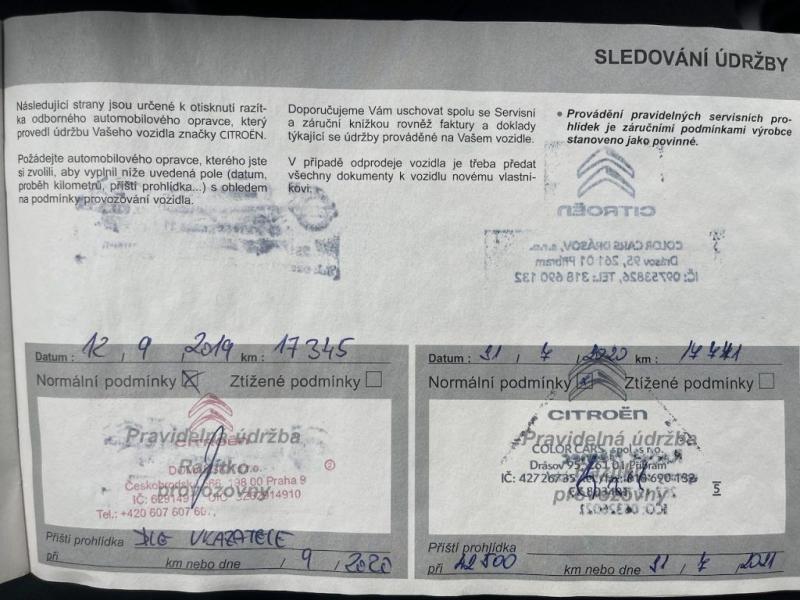 SLEDOVÁNÍ ÚDRŽBY
Následující strany jsou určené k otisknutí razít-
ka odborného automobilového opravce, který
provedl údržbu Vašeho vozidla značky CITROËN.
Požádejte automobilového opravce, kterého jste
si zvolili, aby vyplnil níže uvedená pole (datum,
proběh kilometrů, příští prohlídka...) s ohledem
na podmínky provozování vozidla.
Doporučujeme Vám uschovat spolu se Servisní
a záruční knížkou rovněž faktury a doklady
týkající se údržby prováděné na Vašem vozidle.
V případě odprodeje vozidla je třeba předat
všechny dokumenty k vozidlu novému vlastní-
kovi.
• Provádění pravidelných servisních pro-
hlídek je záručními podmínkami výrobce
stanoveno jako povinné.
CITROËN
COLOR CARS DRÁSOV, s.r.o.
Drásov 95, 261 01 Příbram
IČ: 09753826, TEL.: 318 690 132
Datum : 12 / 9 / 2019 km : 17345
Normální podmínky Ztížené podmínky
CITROËN
Pravidelná údržba
Razítko
provozovny
Českobrodská 198 00 Praha 9
Tel.: +420 607 607
Příští prohlídka DLE UKAZATELE
při km nebo dne / 9 / 2020
Datum : 31 / 7 / 2020 km : 17741
Normální podmínky Ztížené podmínky
CITROËN
Pravidelná údržba
COLOR CARS, spol. s r.o.
Drásov 95, 261 01 Příbram
IČ: 42726735
provozovny
5
Příští prohlídka
při 42500 km nebo dne 31 / 7 / 2021